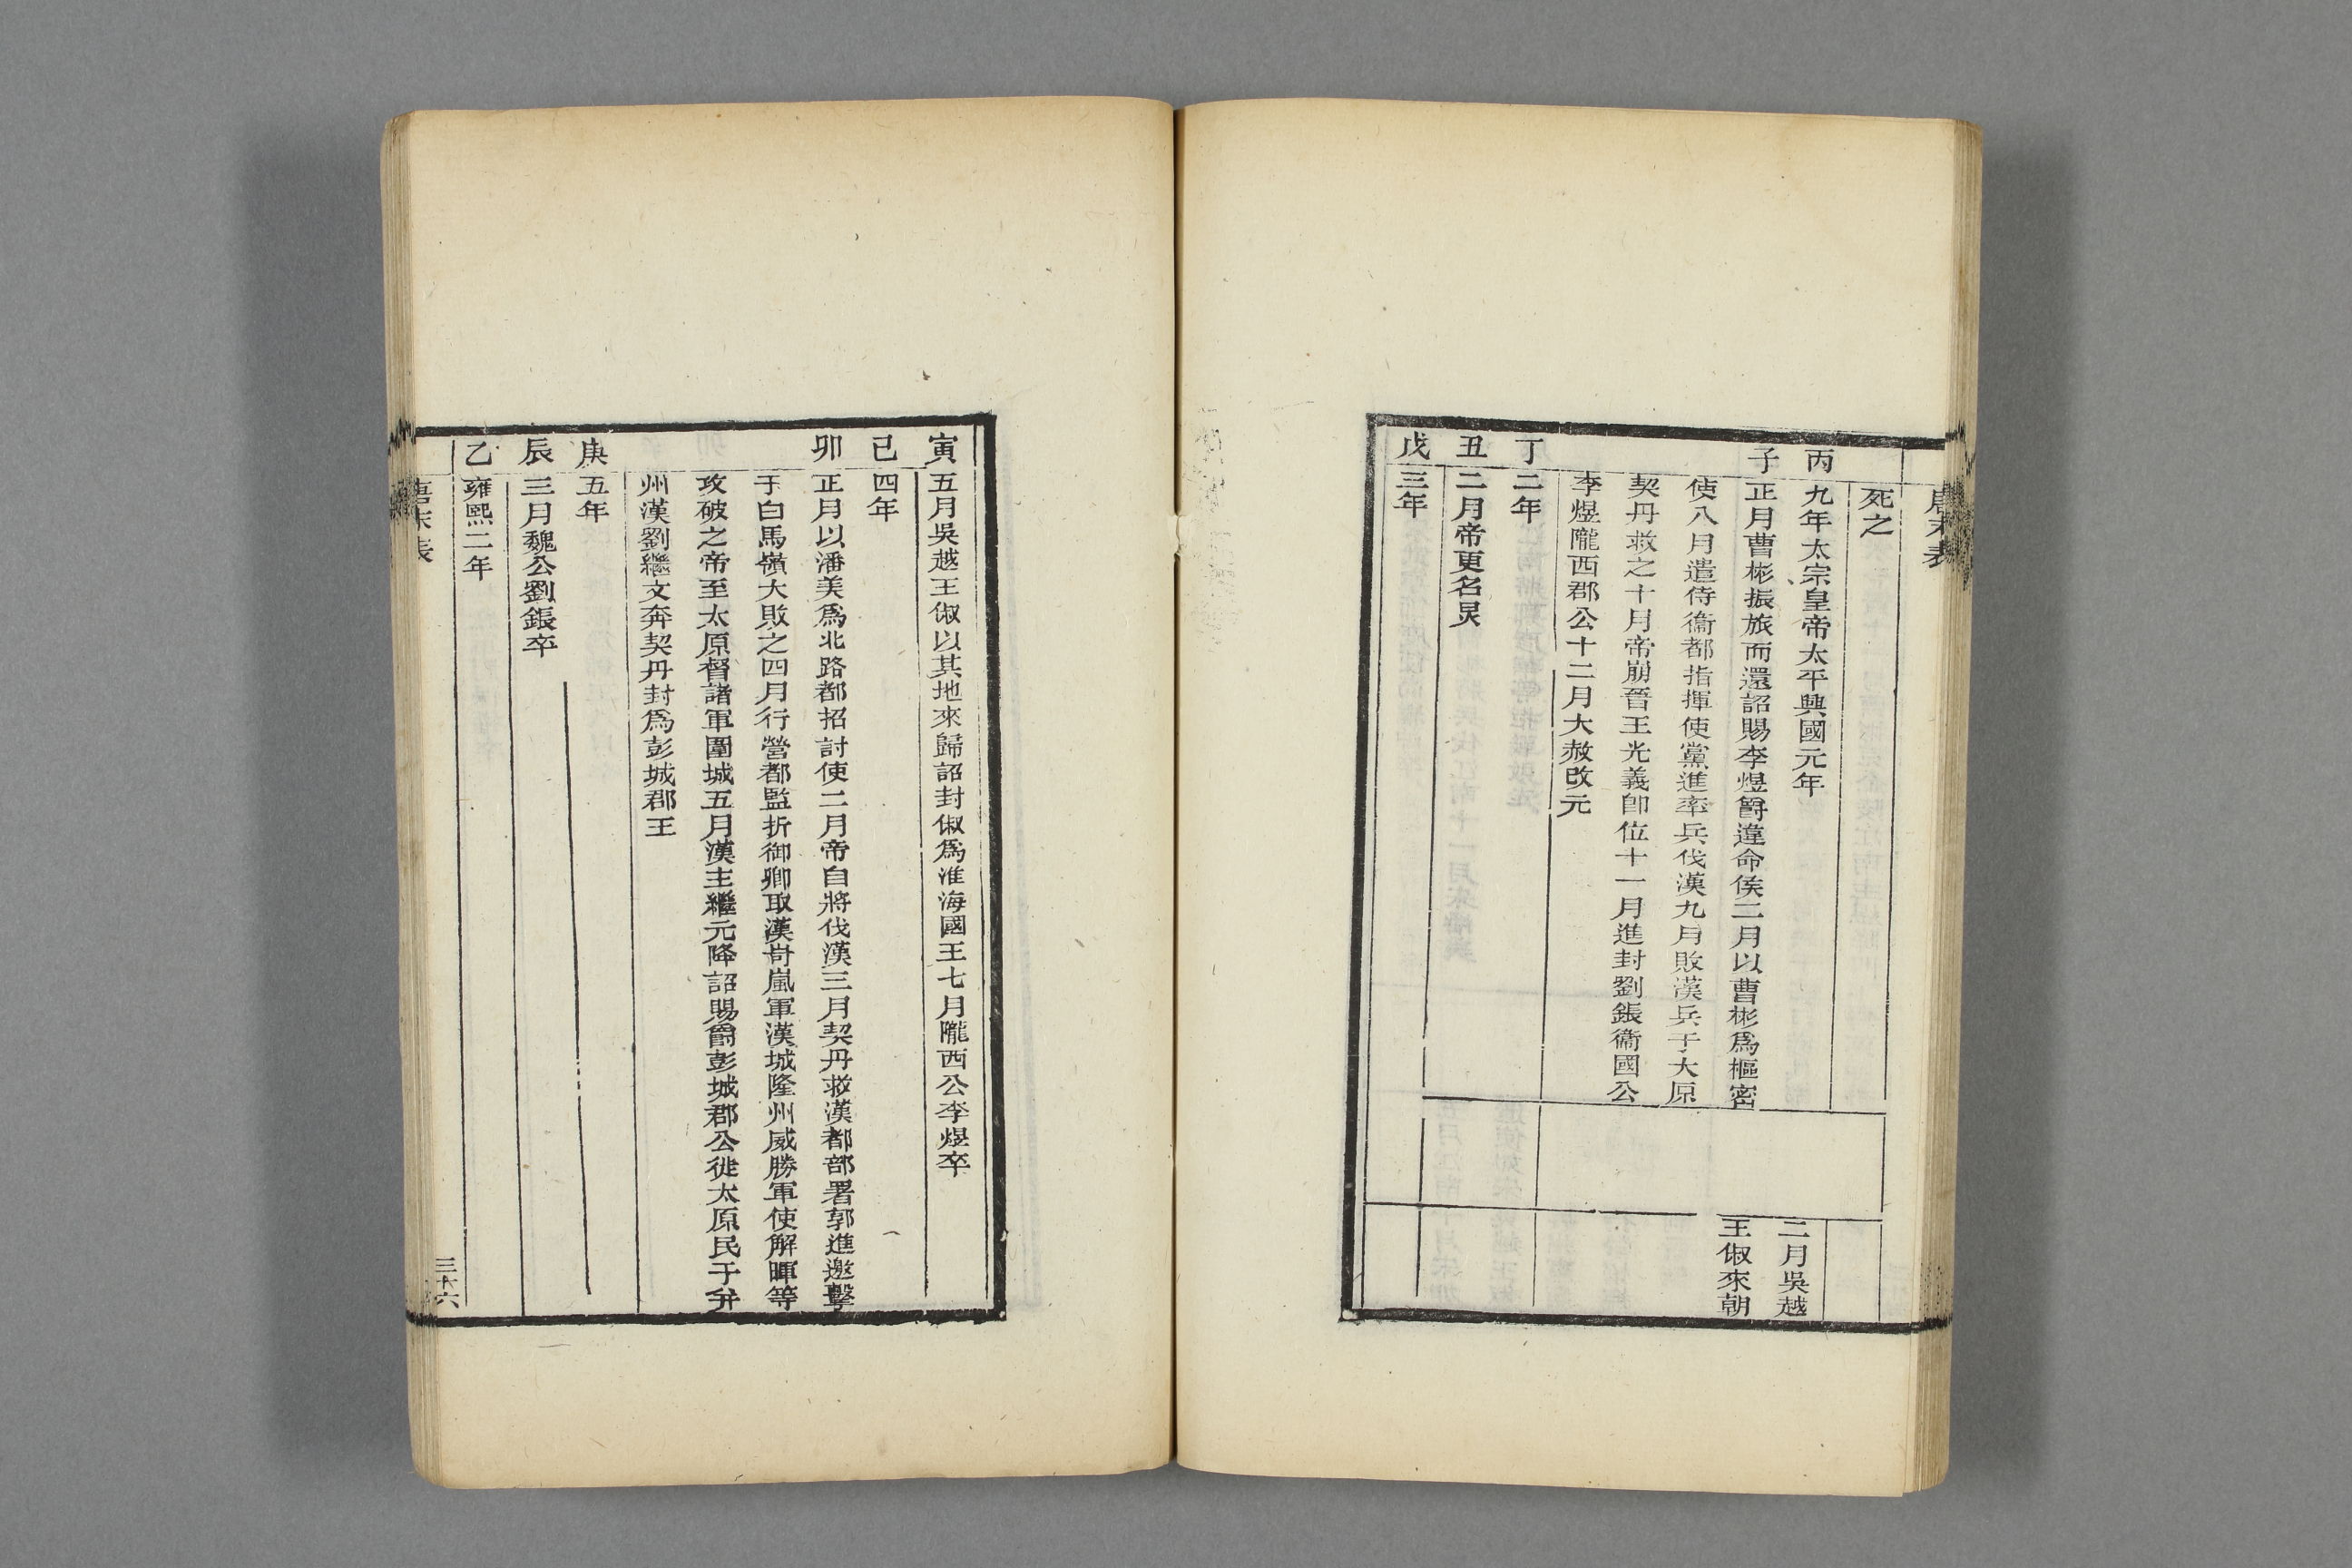 唐末表
死之
丙
九年太宗皇帝太平興國元年
子
正月曹彬振旅而還詔賜李煜爵違命侯二月以曹彬爲樞密
使八月遣侍衞都指揮使黨進率兵伐漢九月敗漢兵于大原
契丹救之十月帝崩晉王光義卽位十一月進封劉鋹衞國公
李煜隴西郡公十二月大赦改元
二月吳越
王俶來朝
丁
二年
丑
二月帝更名炅
戊
三年
寅
五月吳越王俶以其地來歸詔封俶爲淮海國王七月隴西公李煜卒
已
四年
卯
正月以潘美爲北路都招討使二月帝自將伐漢三月契丹救漢都部署郭進邀擊
于白馬嶺大敗之四月行營都監折御卿取漢岢嵐軍漢城隆州威勝軍使解暉等
攻破之帝至太原督諸軍圍城五月漢主繼元降詔賜爵彭城郡公徙太原民于幷
州漢劉繼文奔契丹封爲彭城郡王
庚
五年
辰
三月魏公劉鋹卒
乙
雍熙二年
唐末表
三十六